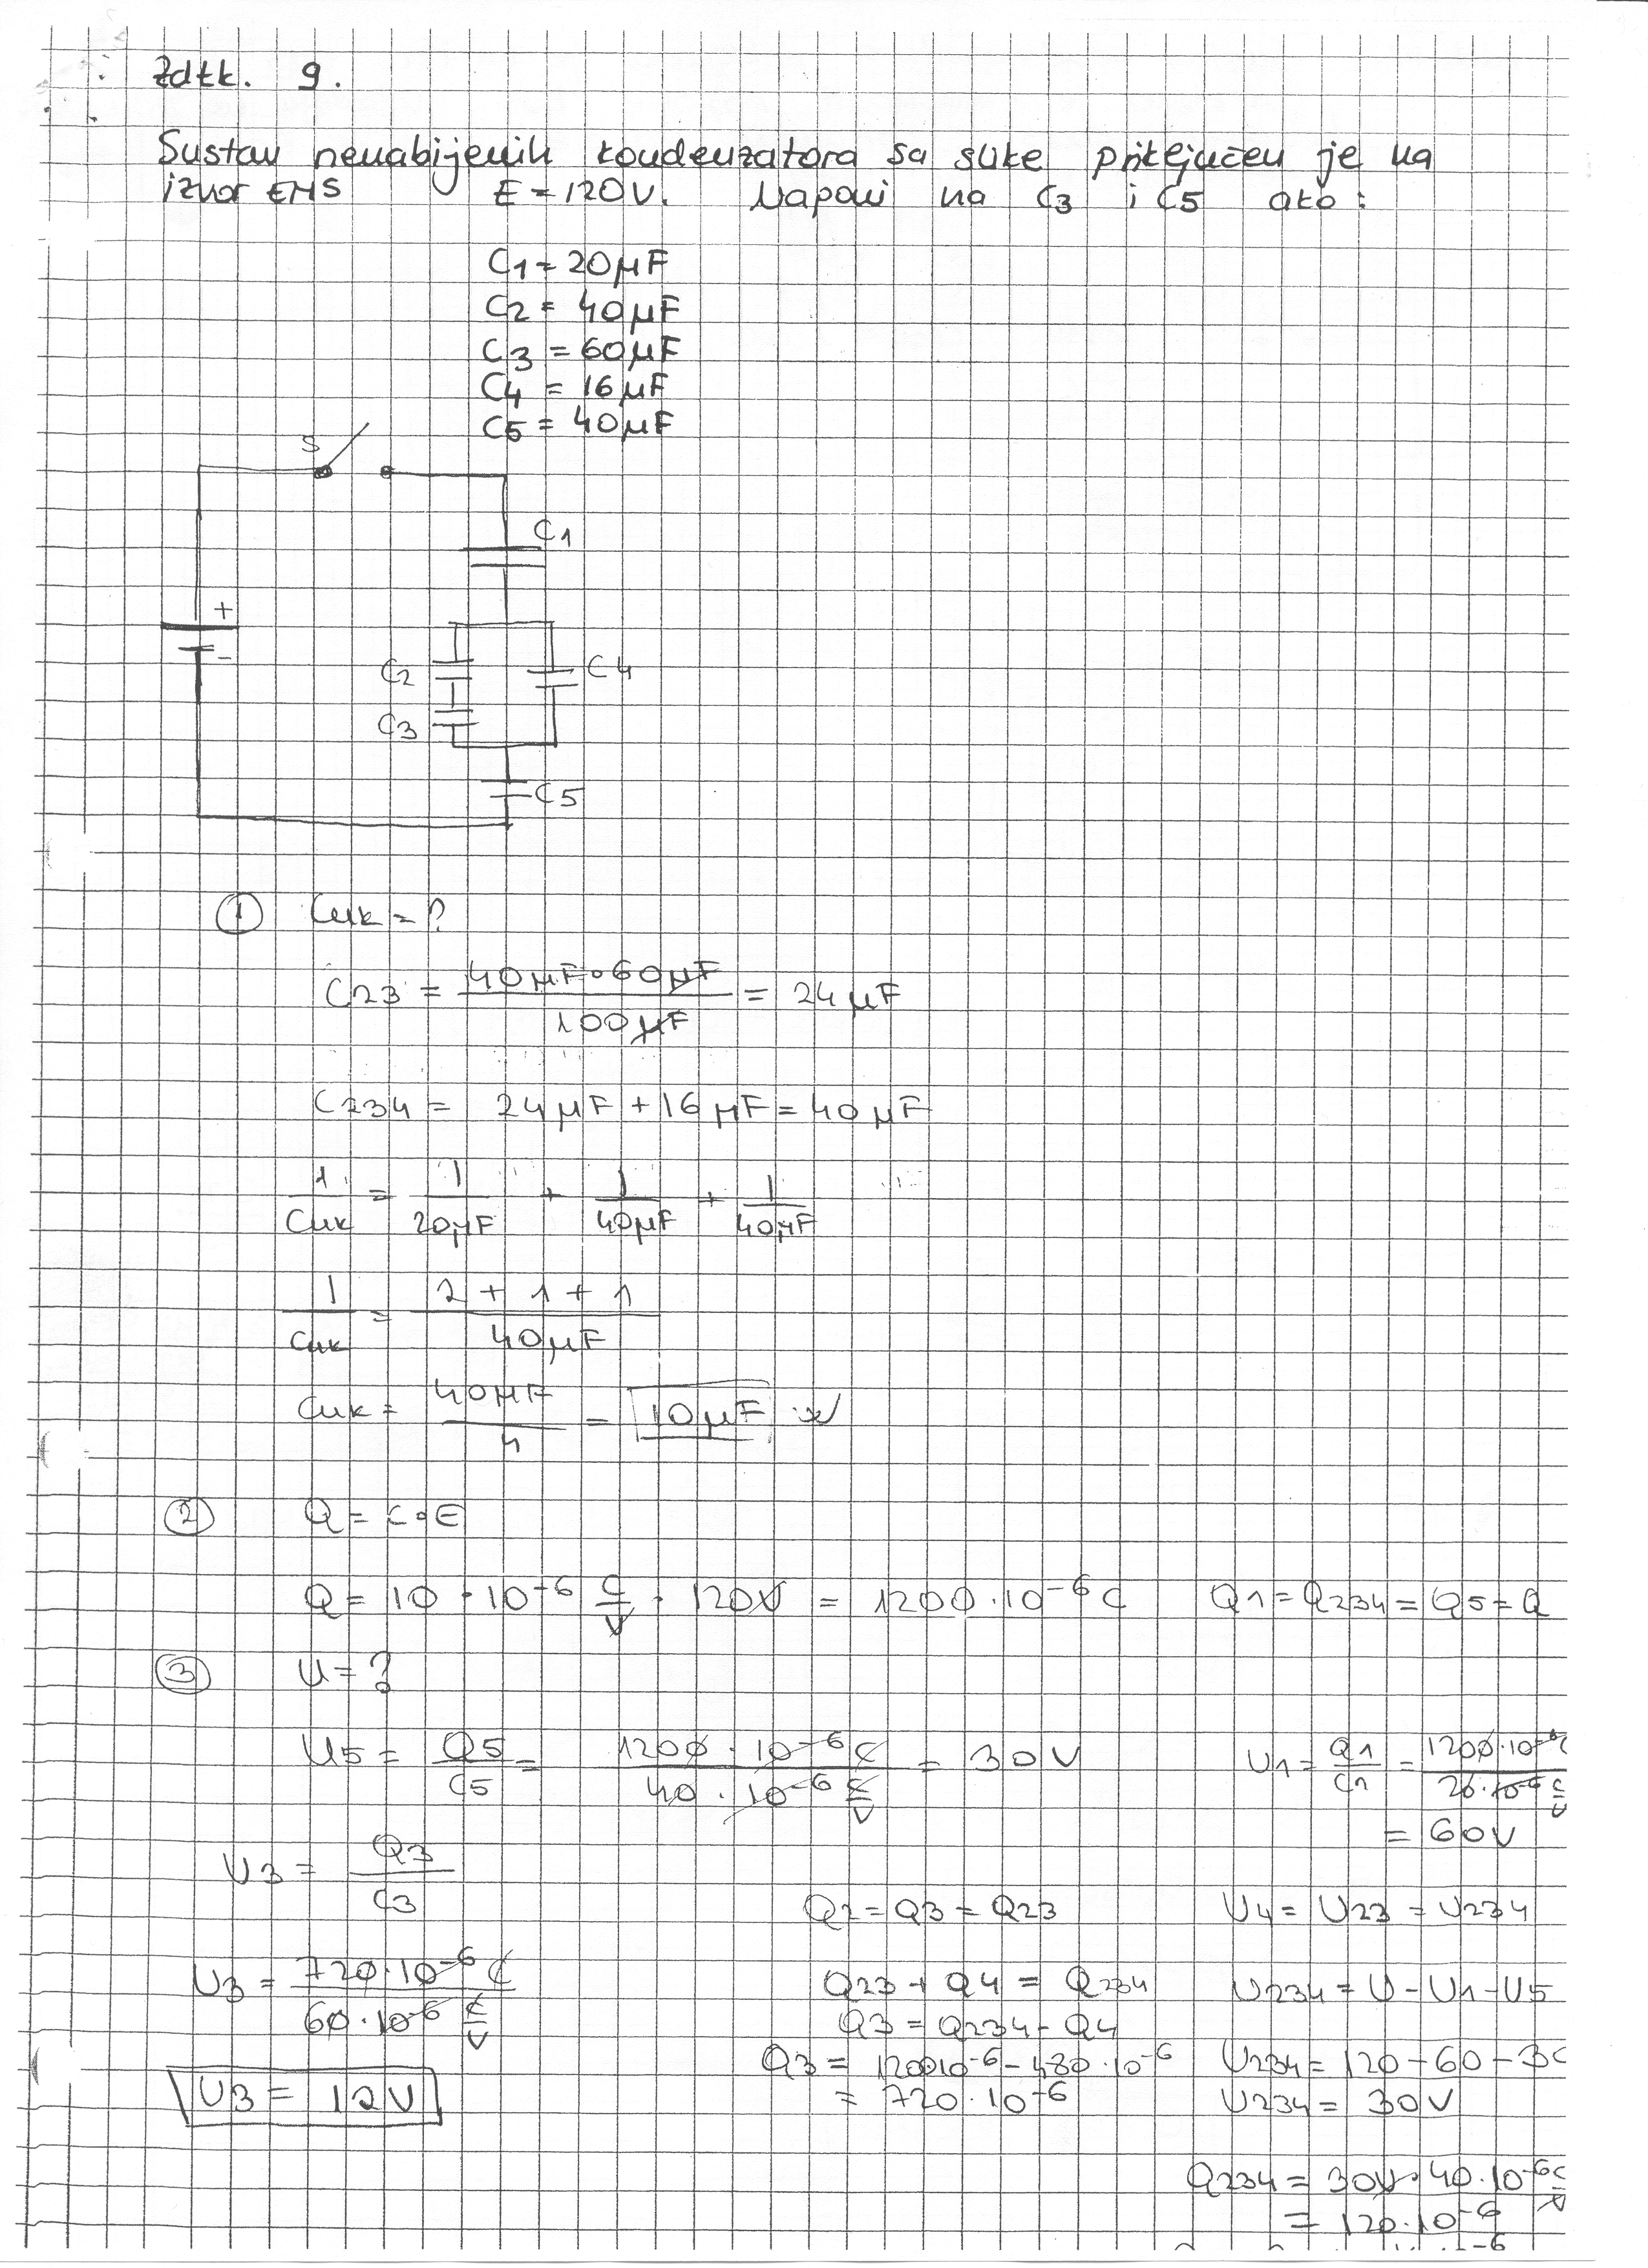 Zdtk. 9.
Sustav nenabijenih kondenzatora sa slike priključen je na
izvor EMS E = 120V. Naponi na C3 i C5 ako:
C1 = 20μF
C2 = 40μF
C3 = 60μF
C4 = 16μF
C5 = 40μF
S
C1
+
-
C2
C4
C3
C5
① Cuk = ?
C23 = 40μF∘60μF / 100μF = 24μF
C234 = 24μF + 16μF = 40μF
1/Cuk = 1/20μF + 1/40μF + 1/40μF
1/Cuk = 2 + 1 + 1 / 40μF
Cuk = 40μF / 4 = 10μF
② Q = C∘E
Q = 10 · 10⁻⁶ C/V · 120V = 1200·10⁻⁶ C Q1 = Q234 = Q5 = Q
③ U = ?
U5 = Q5/C5 = 1200 · 10⁻⁶ C / 40 · 10⁻⁶ C/V = 30V U1 = Q1/C1 = 1200·10⁻⁶ C / 20·10⁻⁶ C/V
= 60V
U3 = Q3/C3
Q2 = Q3 = Q23 U4 = U23 = U234
U3 = 720·10⁻⁶ C / 60·10⁻⁶ C/V
Q23 + Q4 = Q234 U234 = U - U1 - U5
Q3 = Q234 - Q4
Q3 = 1200 10⁻⁶ - 480·10⁻⁶ U234 = 120 - 60 - 30
= 720·10⁻⁶ U234 = 30V
U3 = 12V
Q234 = 30V·40·10⁻⁶ C/V
= 120·10⁻⁶